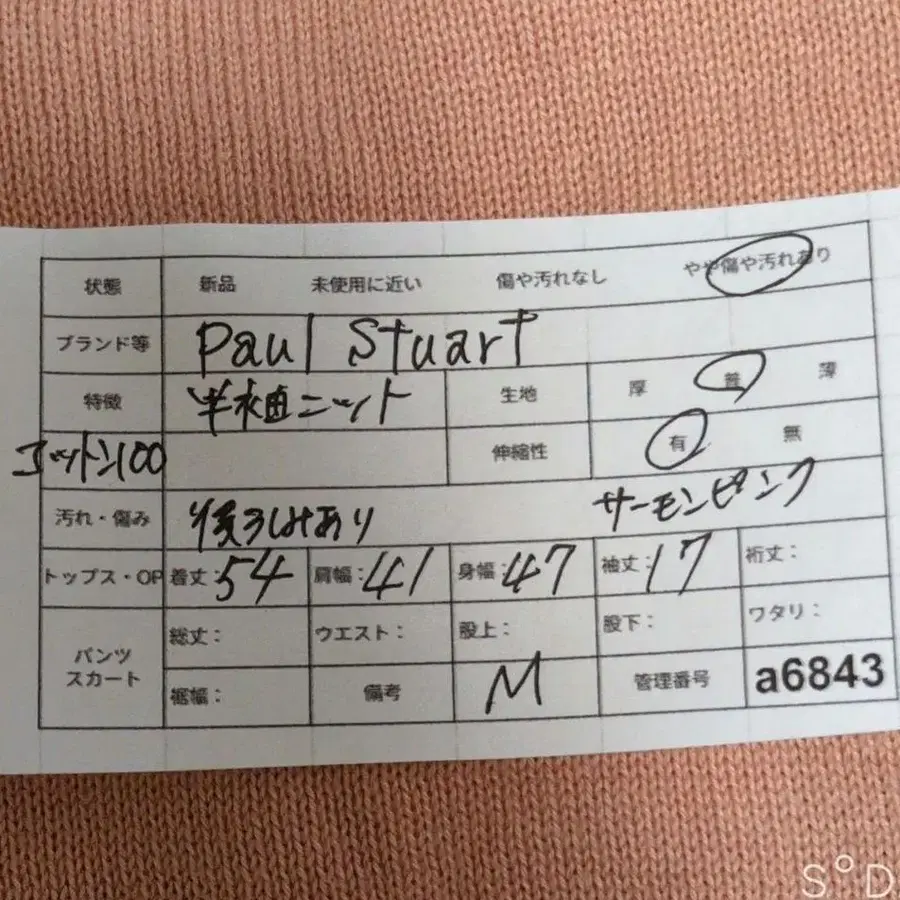 状態 新品 未使用に近い 傷や汚れなし やや傷や汚れあり
ブランド等 Paul Stuart
特徴 半袖ニット 生地 厚 普 薄
コットン100 伸縮性 有 無
汚れ・傷み 後ろしみあり サーモンピンク
トップス・OP 着丈:54 肩幅:41 身幅:47 袖丈:17 裄丈:
パンツ スカート 総丈: ウエスト: 股上: 股下: ワタリ:
裾幅: 備考 M 管理番号 a6843
S°D